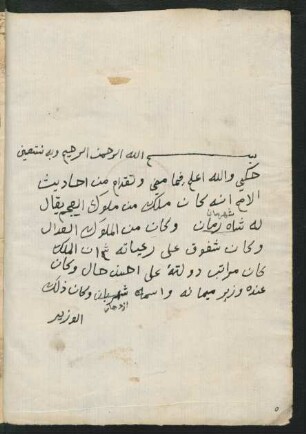 بسم الله الرحمن الرحيم وبه نستعين
حكي والله اعلم فيما مضى وتقدم من احاديث
الامم انه كان ملك من ملوك العجم يقال
له شاه زمان وكان من الملوك العدال
وكان شفوق على رعياته ثم ان الملك
كان مراتب دولته على احسن حال وكان
عنده وزير ميمانه واسمه وكان ذلك
الوزير